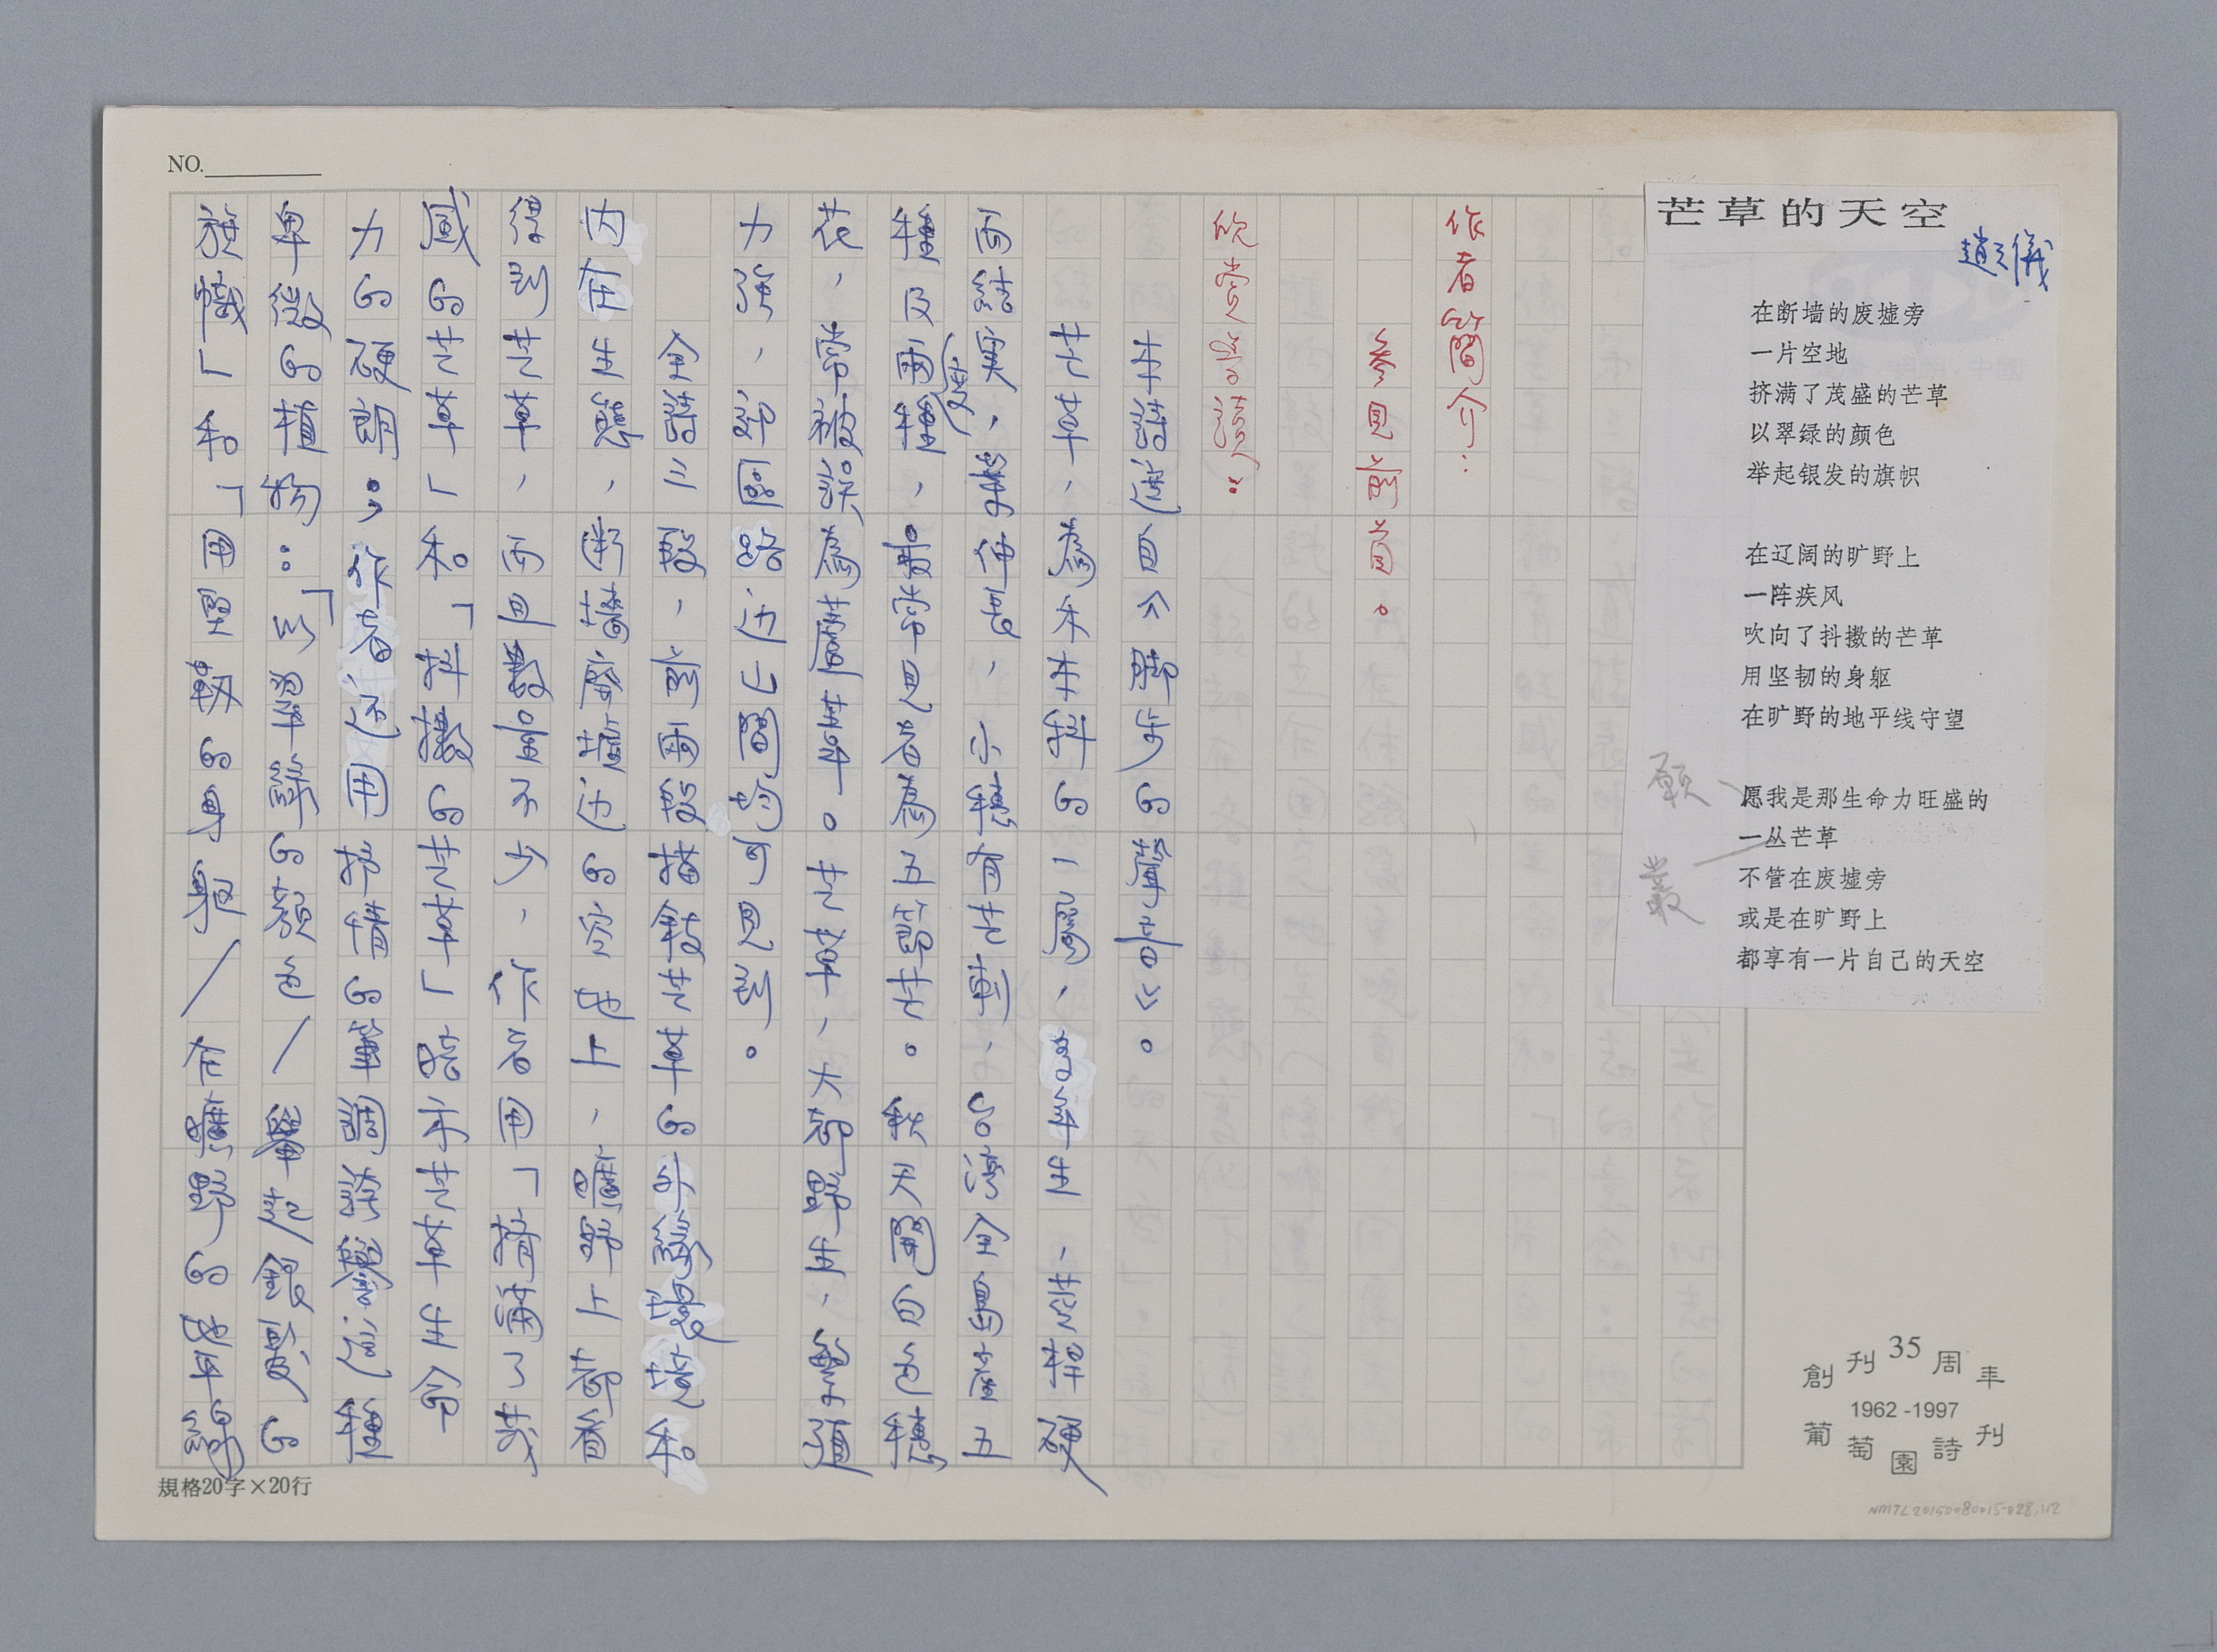 NO.
芒草的天空
趙之儀
在断墙的废墟旁
一片空地
挤满了茂盛的芒草
以翠绿的颜色
举起银发的旗帜
在辽阔的旷野上
一阵疾风
吹向了抖擞的芒草
用坚韧的身躯
在旷野的地平线守望
愿我是那生命力旺盛的
一丛芒草
不管在废墟旁
或是在旷野上
都享有一片自己的天空
願
叢
作者簡介：
參見前頁。
欣賞與解讀：
本詩選自《躍步的聲音》。
芒草，為禾本科的一屬，多年生，莖稈硬
而結實，葉
種及兩變種，最常見者為五節芒。秋天開白色穗
花，常被誤為蘆葦草。芒草，大都野生，繁殖
力強，全國路邊山間均可見到。
全詩三段，前兩段描繪芒草的外發形貌和
內在生態，斷墻廢墟邊的空地上，曠野上都看
得到芒草，而且數量不少，作者用「擠滿了茂
盛的芒草」和「抖擻的芒草」暗示芒草生命
力的硬朗；作者選用
卑微的植物：「以翠綠的顏色／舉起銀髮的
旗幟」和「用堅韌的身軀／在曠野的地平線
規格20字×20行
創刊35周年
1962 -1997
葡萄園詩刊
NMTL20150080015-028,112